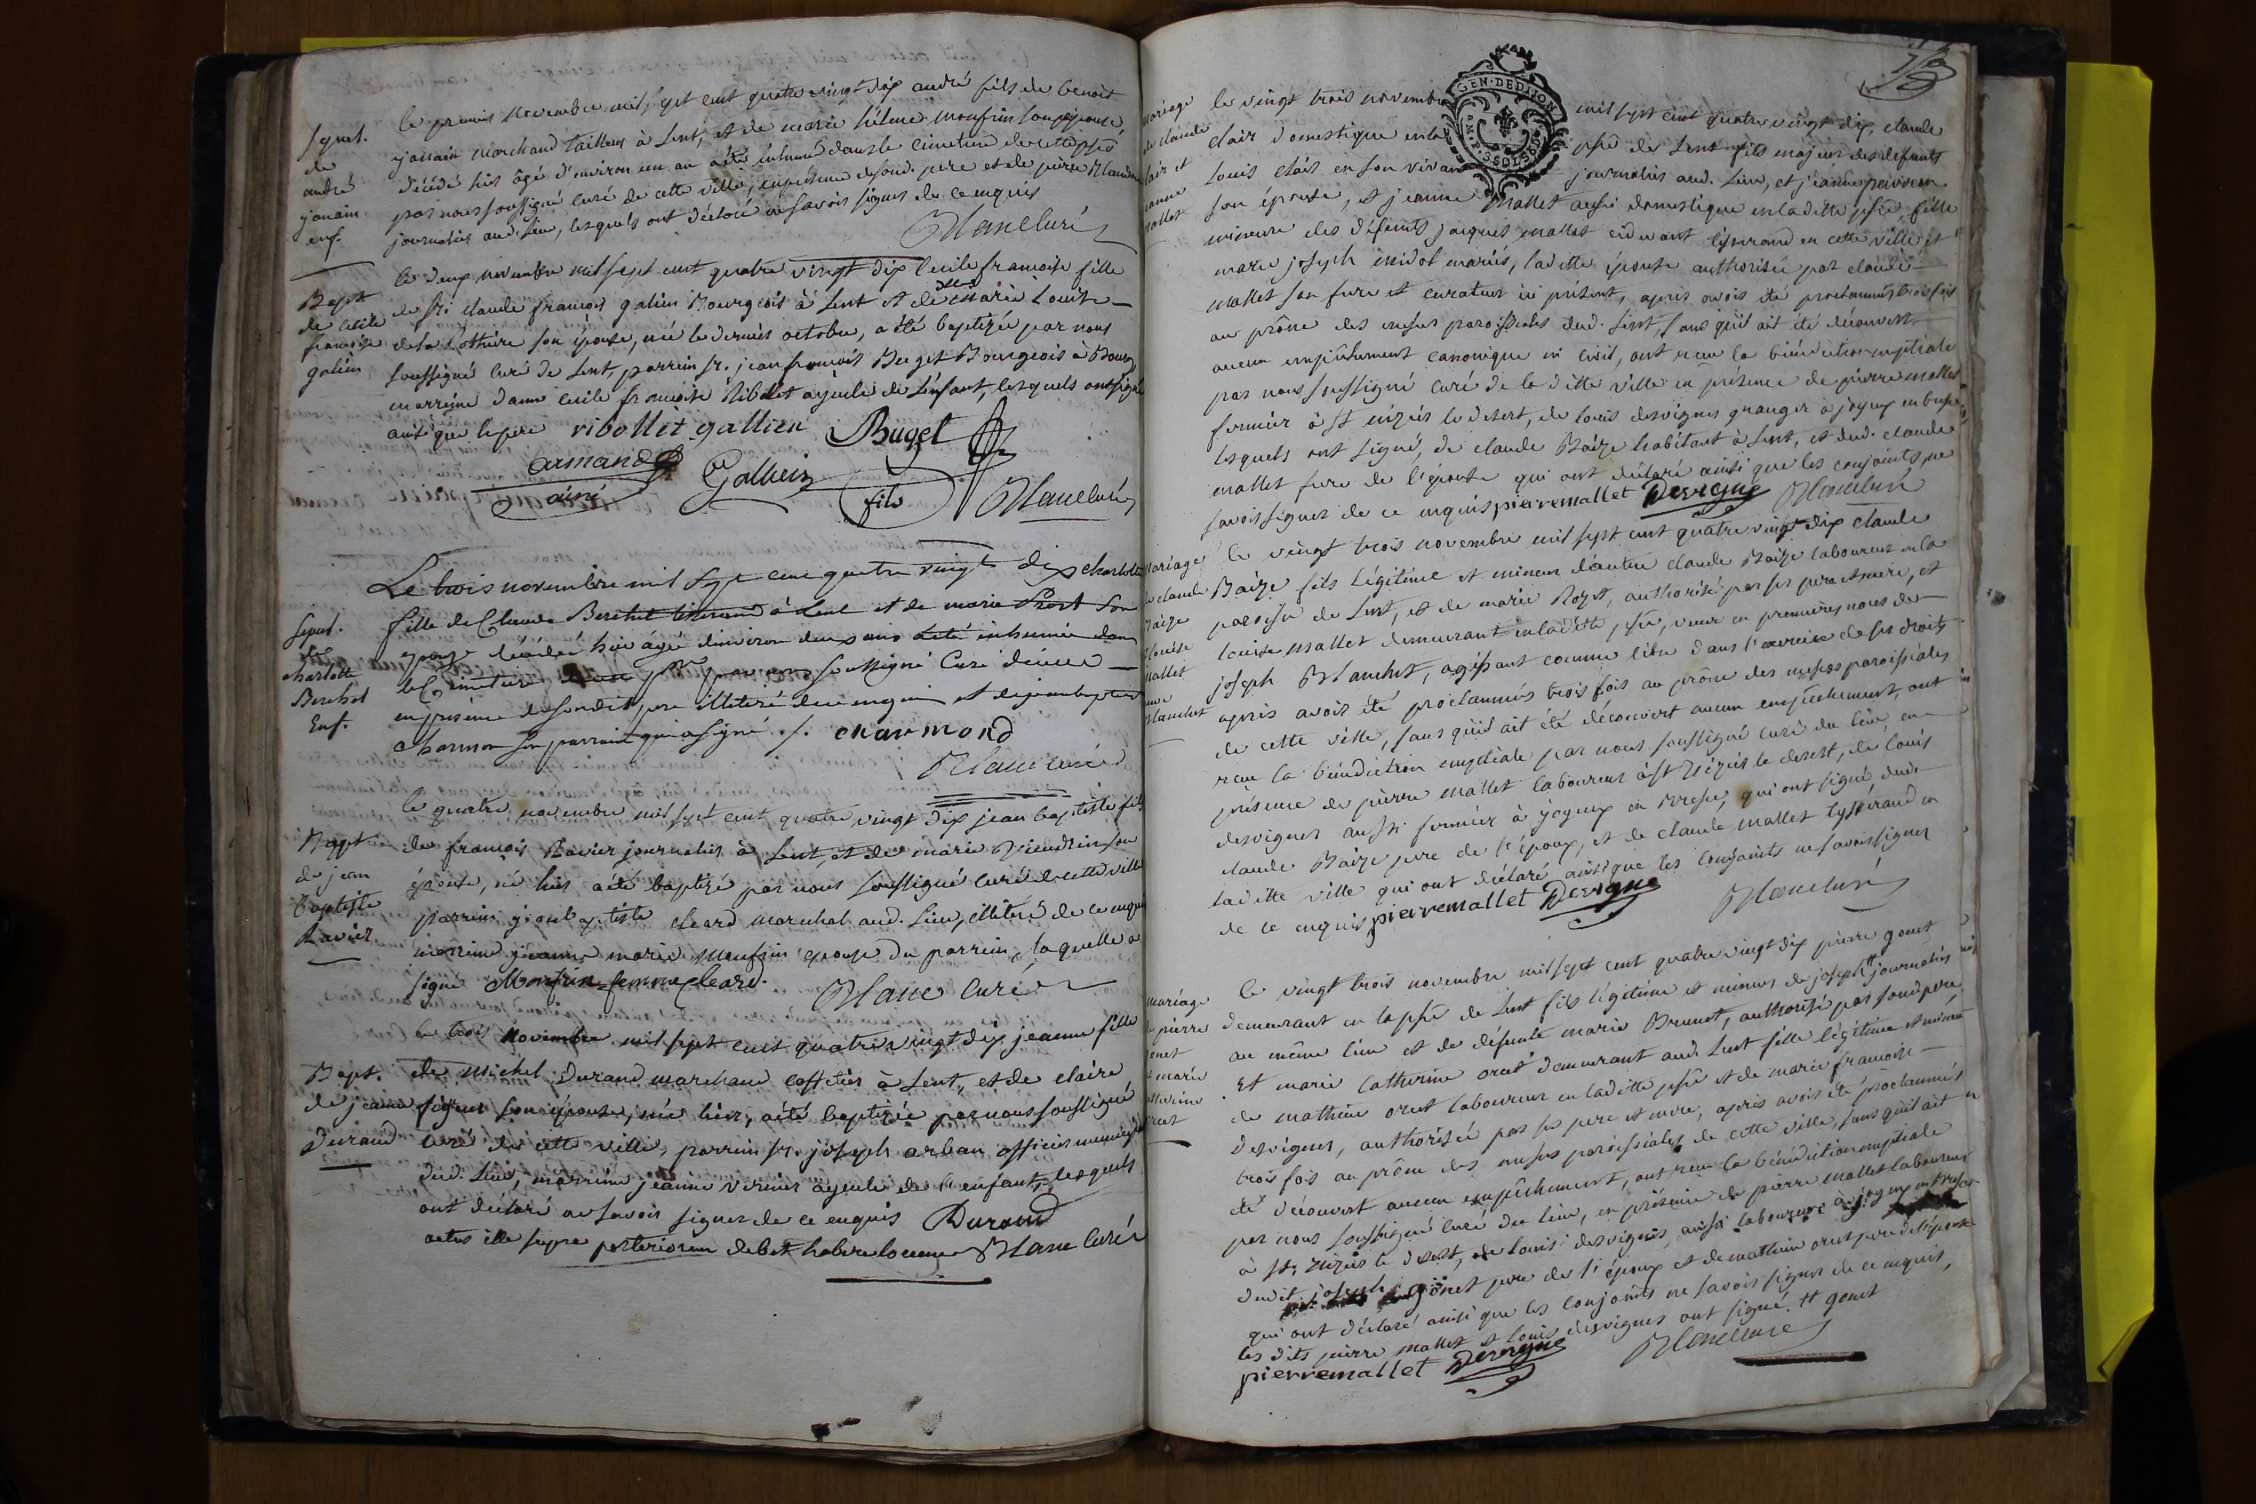 Sepul.
de
andré
janain
enf.
le premier novembre mil sept cent quatre vingt dix andré fils de benoit
janain marchand tailleur à Lent, et de marie hélene monfrin son épouse,
décédé hier âgé d'environ un an a été inhumé dans le cimetiere de cette psse
par nous soussigné curé de cette ville, en présence desond. pere et de pierre
journalier aud. lieu, lesquels ont déclaré ne savoir signer de ce enquis
Blanc curé
Bapt
de cécile
françoise
galien
le deux novembre mil sept cent quatre vingt dix Cécile françoise fille
de Sr. claude françois galien Bourgeois à Lent et de dlle marie Louise
son épouse, née le dernier octobre, a été baptizée par nous
soussigné curé de Lent, parrein sr. jean françois Buget Bourgeois à Bourg
marreine dame cecile françoise Ribolet ayeule de l'enfant, lesquels ont signé
ainsi que le pere ribollet gallien Buget
armand
ainé
Gallien
fils
Blanc curé
Sepul.
de
charlotte
Berthet
Enf.
Le trois novembre mil sept cent quatre vingt dix charlotte
fille de Claude Berthet tisserand à Lent et de marie Prost son
epouse décédée hier agée d'environ deux ans a eté inhumée dans
le Cimetiere par nous soussigné Curé
en présence de sondit pere illitéré de ce enquis et de jean baptiste
charmon son parrain qui a signé ./. charmond
Blanc curé
Bapt
de jean
baptiste
Ravier
le quatre novembre mil sept cent quatre vingt dix jean baptiste fils
de françois Ravier journalier à Lent, et de marie son
épouse, né hier a été baptizé par nous soussigné curé de cette ville
parrein jean baptiste cleard marechal aud. lieu, illitéré de ce enquis
marreine jeanne marie Monfrin epouse du parrein, laquelle a
signé Monfrin femme Cleard.
Blanc curé
Bapt.
de jeanne
Durand
le trois novembre mil sept cent quatre vingt dix jeanne fille
de michel Durand marchand caffetier à Lent, et de claire
son épouse, née hier, a été baptizée par nous soussigné
curé de cette ville, parrein sr. joseph arban officier municipal
dud. lieu, marreine jeanne vernier ayeule de l'enfant, lesquels
ont déclaré ne savoir signer de ce enquis Durand
actus ille supra posteriorem debet habere locum Blanc Curé
mariage
de claude
clair et
jeanne
mallet
GEN. DE DIJON
M. P. 3 SOLS 8 D.
le vingt trois novembre mil sept cent quatre vingt dix, claude
clair domestique en la psse de Lent fils majeur des défunts
Louis clair en son vivant journalier aud. lieu, et jeanne
son épouse, et jeanne mallet aussi domestique en la ditte psse, fille
mineure des défunts jacques mallet cidevant tisserand en cette ville et
marie joseph mariés, laditte épouse authorisée par claude
mallet son frere et curateur ici présent, après avoir été proclammés trois fois
au prône des messes paroissiales dud. Lent, sans qu'il ait été découvert
aucun empêchement canonique ni civil, ont reçu la bénédiction nuptiale
par nous soussigné curé de la ditte ville en présence de pierre mallet
fermier à St nizier le desert, de louis desvignes granger à joyeux en bresse
lesquels ont signé, de claude Baize habitant à Lent, et dud. claude
mallet frere de l'épouse qui ont déclaré ainsi que les conjoints ne
savoir signer de ce enquis pierre mallet Desvigne Blanc curé
mariage
de claude
Baize
et louise
mallet
veuve
blanchet
le vingt trois novembre mil sept cent quatre vingt dix claude
Baize fils légitime et mineur d'autre claude Baize laboureur en la
paroisse de Lent, et de marie Royet, authorisé par ses pere et mere, et
louise mallet demeurant en laditte psse, veuve en premieres noces de
joseph Blanchet, agissant comme libre dans l'exercice de ses droits
après avoir été proclammés trois fois au prône des messes paroissiales
de cette ville, sans qu'il ait été découvert aucun empêchement, ont
reçu la bénédiction nuptiale par nous soussigné curé du lieu, en
présence de pierre mallet laboureur à St Nizier le desert, de louis
desvignes aussi fermier à joyeux en bresse, qui ont signé dud.
claude Baize pere de l'époux, et de claude mallet tysserand en
laditte ville qui ont déclaré ainsi que les conjoints ne savoir signer
de ce enquis pierre mallet Desvigne
Blanc curé
mariage
de pierre
gonet
et marie
catherine
orcet
le vingt trois novembre mil sept cent quatre vingt dix pierre gonet
demeurant en la psse de Lent fils légitime et mineur de joseph # journalier
au même lieu et de défunte marie Brunet, authorisé par sond pere,
Et marie catherine orcet demeurant aud. Lent fille légitime et mineure
de mathieu orcet laboureur en laditte psse et de marie françoise
desvignes, authorisée par ses pere et mere, après avoir été proclammés
trois fois au prône des messes paroissiales de cette ville, sans qu'il ait
été découvert aucun empêchement, ont reçu la bénédiction nuptiale
par nous soussigné curé du lieu, en présence de pierre mallet laboureur
à St. nizier le desert, de louis desvignes, aussi laboureur à joyeux en bresse
dudit joseph gonet pere de l'époux et de mathieu orcet pere de l'épouse
qui ont déclaré ainsi que les conjoints ne savoir signer de ce enquis,
les dits pierre mallet et louis desvignes ont signé. # gonet
pierre mallet Desvigne
Blanc curé